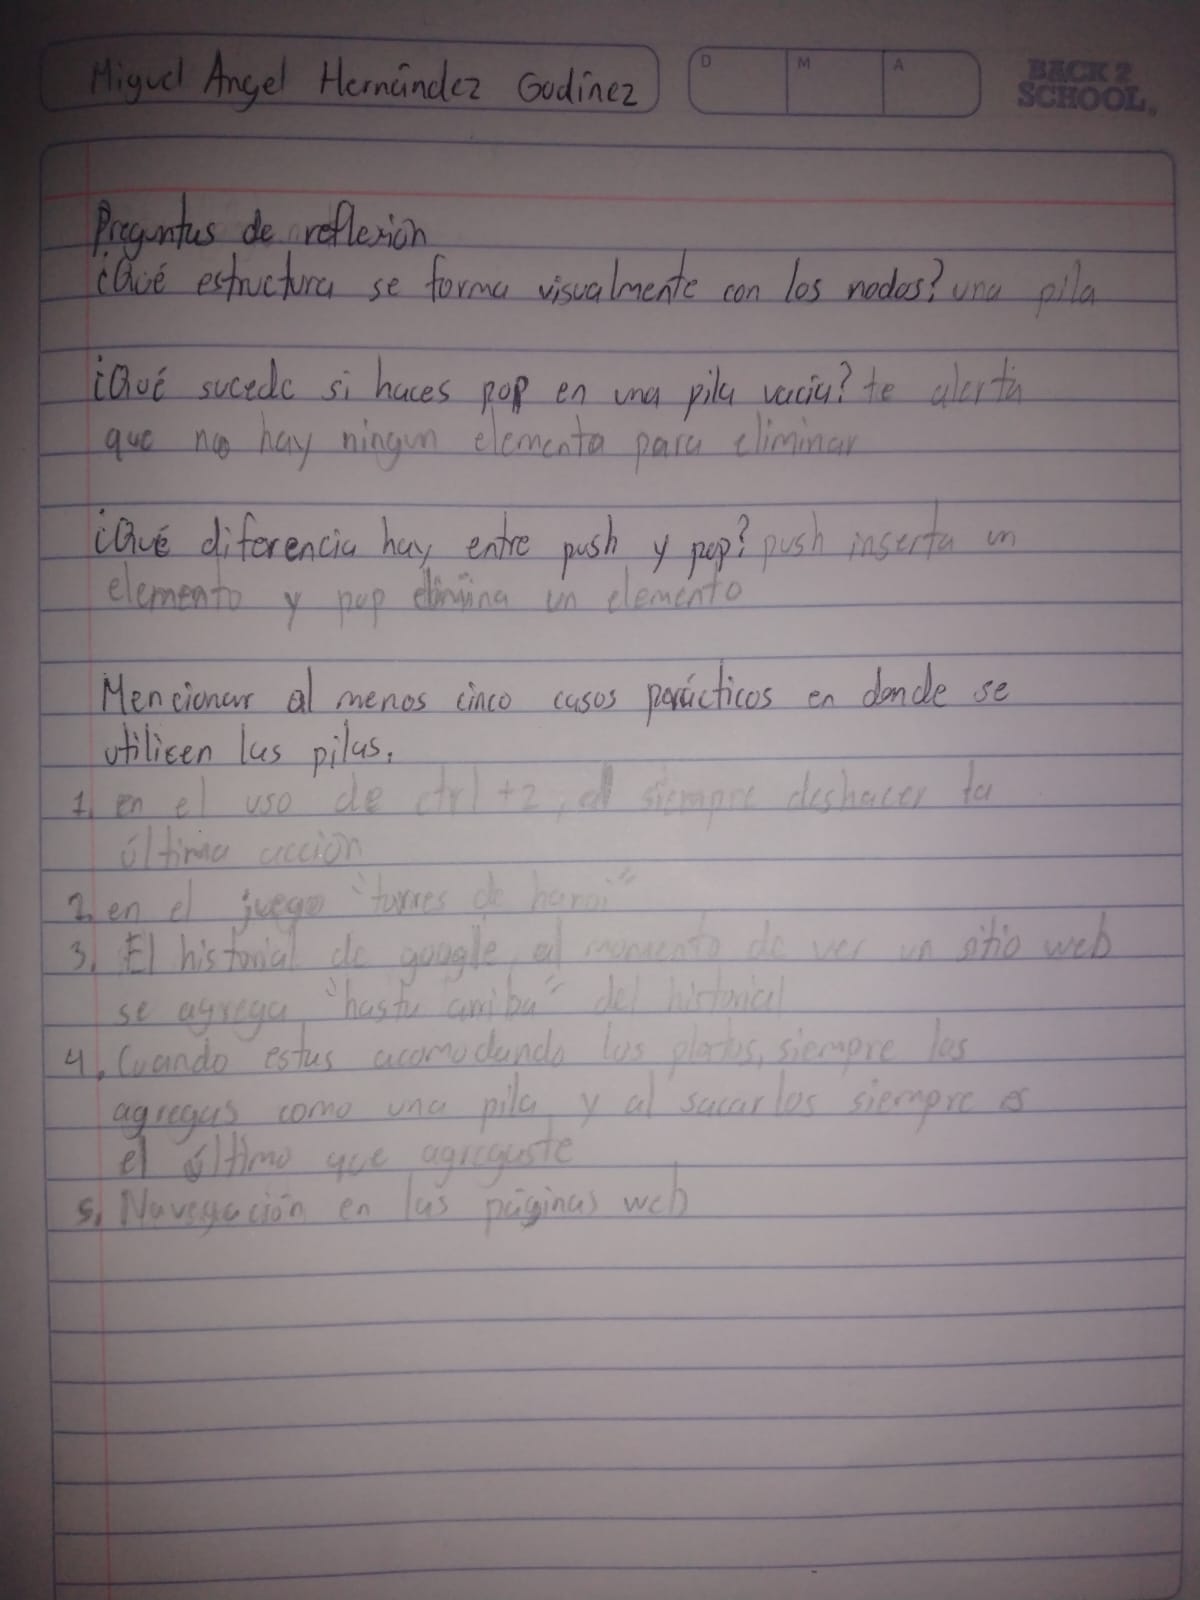 Miguel Angel Hernández Godínez
D M A
BACK 2
SCHOOL
Preguntas de reflexión
¿Qué estructura se forma visualmente con los nodos? una pila
¿Qué sucede si haces pop en una pila vacía? te alerta
que no hay ningun elemento para eliminar
¿Qué diferencia hay entre push y pop? push inserta un
elemento y pop elimina un elemento
Mencionar al menos cinco casos parácticos en donde se
utilicen las pilas.
1. en el uso de ctrl +z, al siempre deshacer la
última acción
2. en el juego "torres de hanoi"
3. El historial de google, al momento de ver un sitio web
se agrega "hasta arriba" del historial
4. Cuando estas acomodando los platos, siempre los
agregas como una pila y al sacarlos siempre es
el último que agregaste
5. Navegación en las páginas web